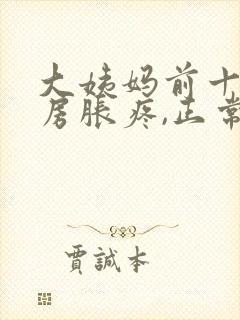 大姨妈前十
房胀疼,正常
賈誠本